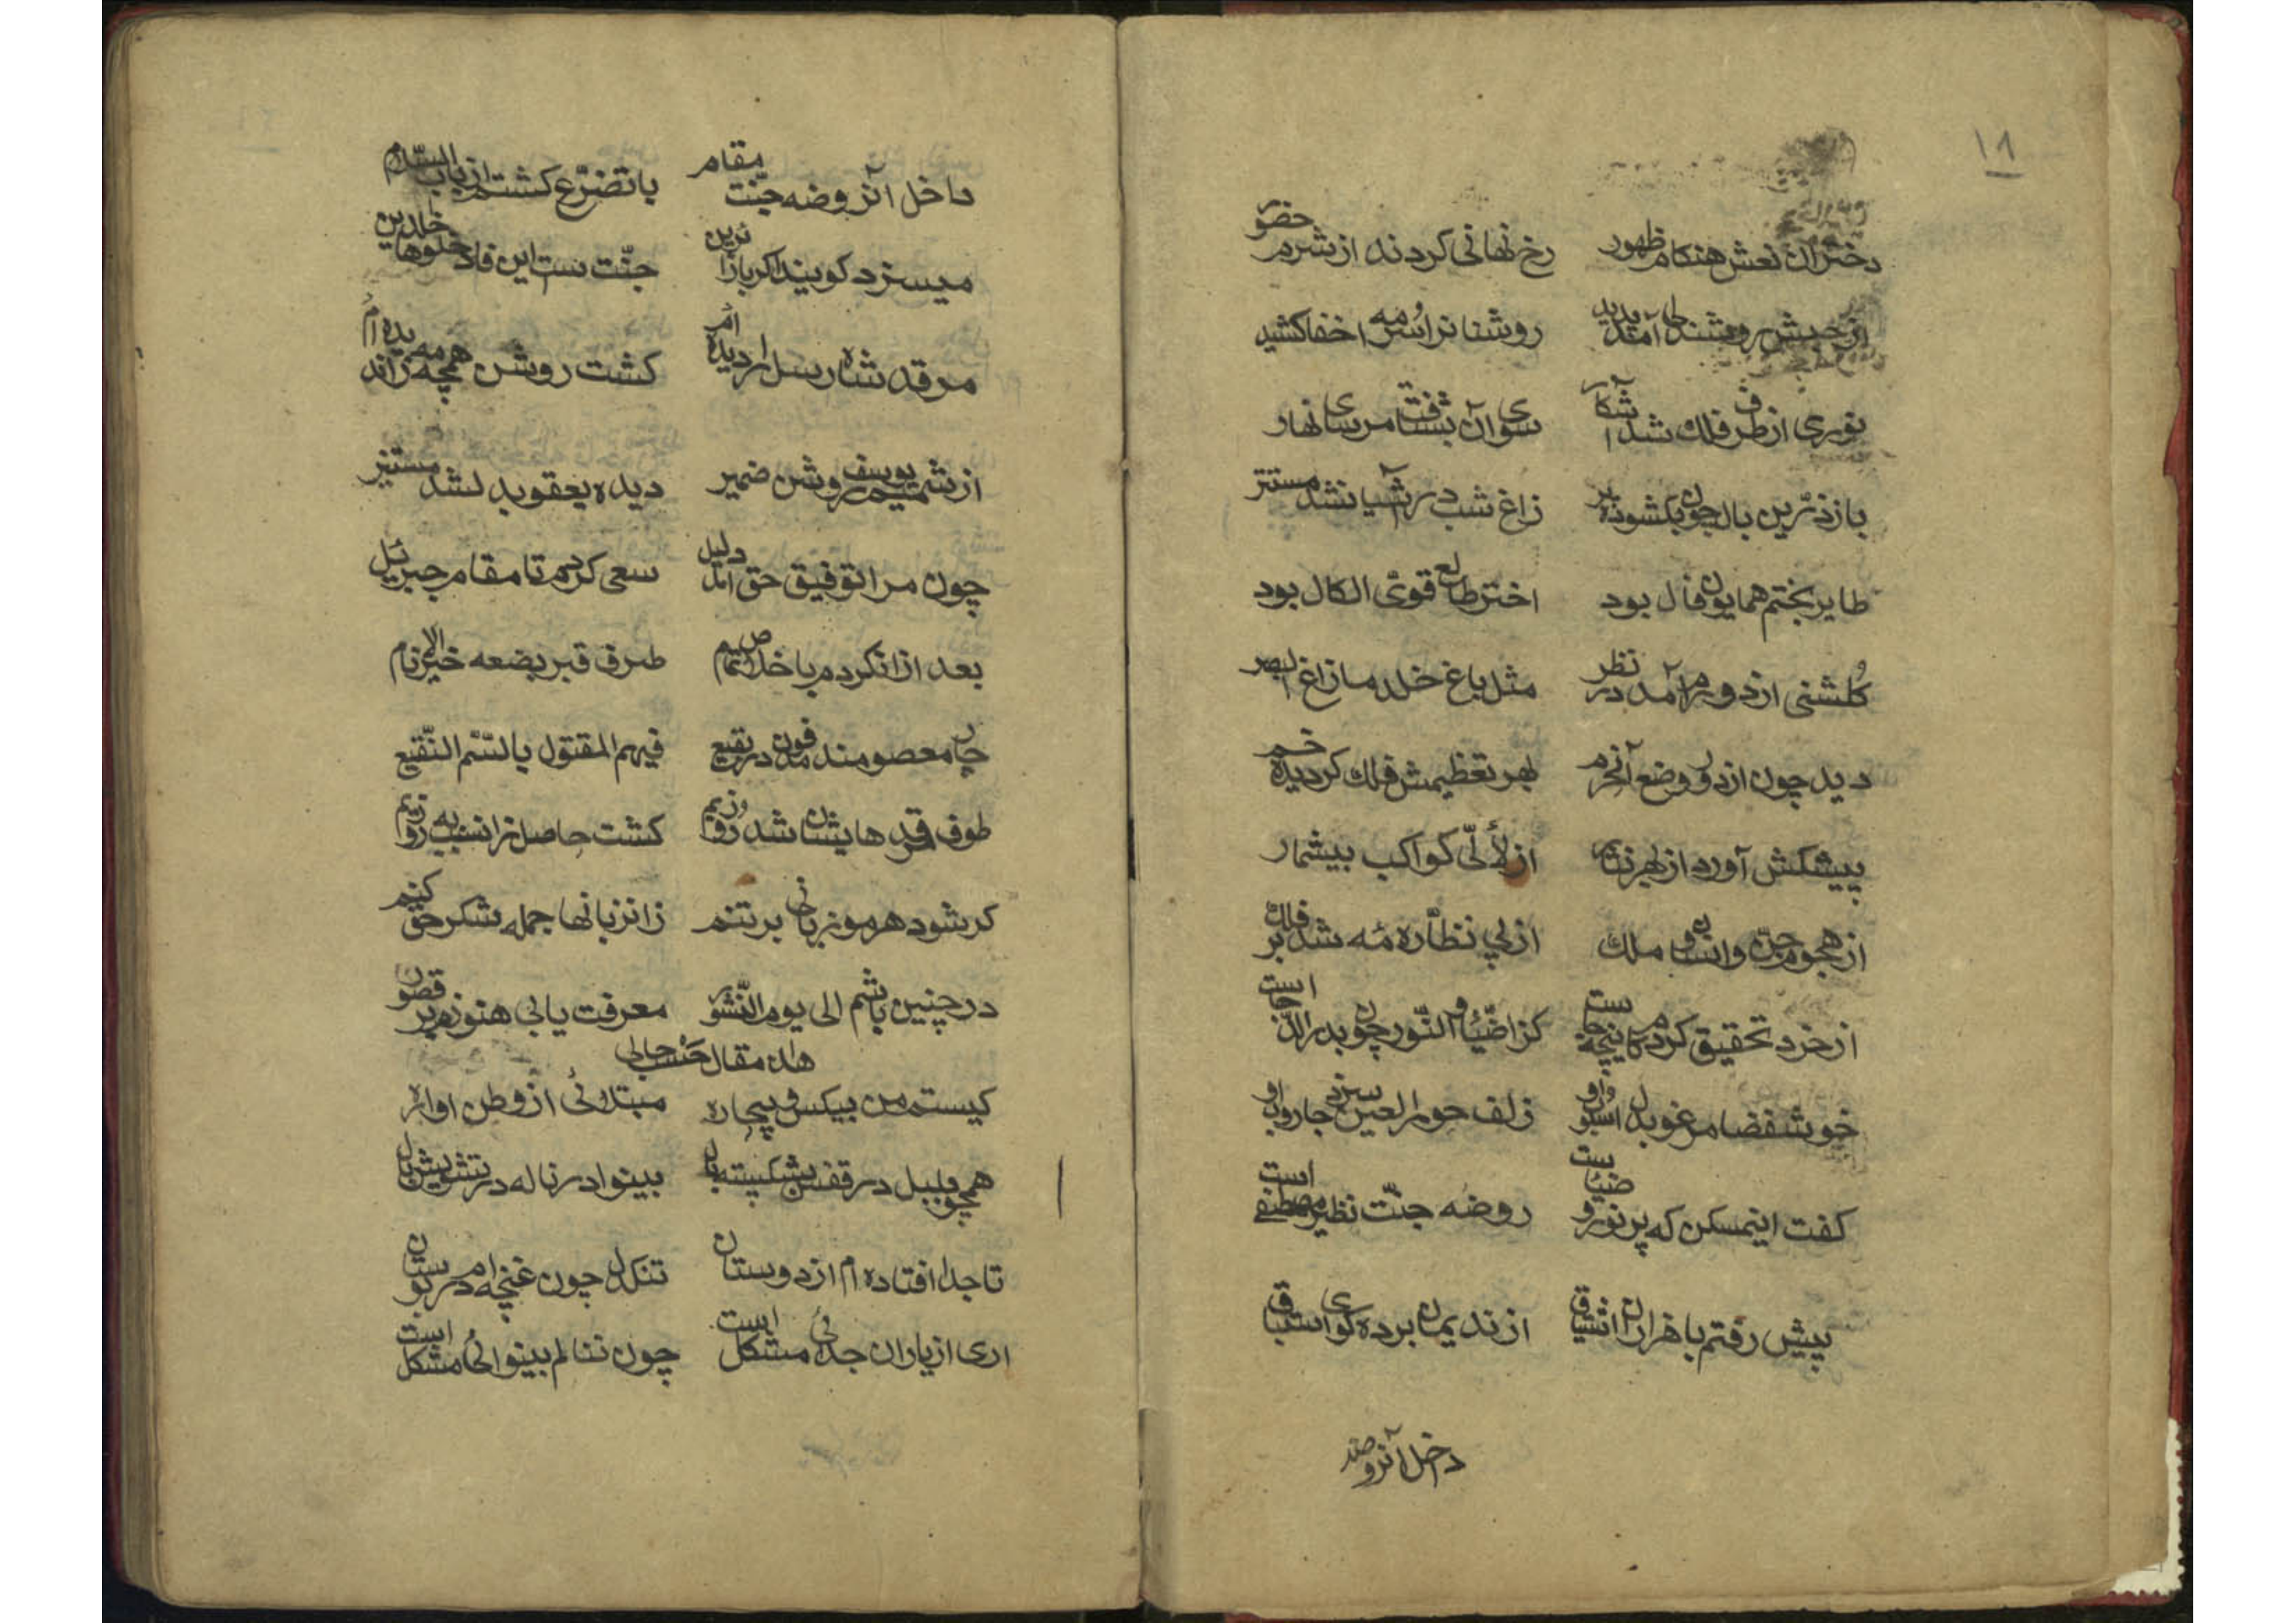 ١٨
دختران نعش هنکام ظهور رخ نهانی کردند از شرم حضور
از حبش روشندلی آمد پدید روشنانرا سرمه اخفا کشید
نوری از طرف فلک شد آشکار سوی آن بشتافت مرسای نهار
باز زرین بال چون بکشود پر زاغ شب در آشیان شد مستتر
طایر بختم همایون فال بود اختر طالع قوی الکال بود
کلشنی از دورم آمد در نظر مثل باغ خلد مازاغ البصر
دید چون از دور وضع آنحرم بهر تعظیمش فلک کردیده خم
پیشکش آورد از بهر نثار از لألی کواکب بیشمار
از هجوم جن و انسان و ملک از پی نظاره مه شد بر فلک
از خرد تحقیق کردم کاینچه جاست کز ضیاء و النور چون بدر الدجاست
خوشفضا مرغوبدل اسلوب او زلف حور العین سزد جاروب او
کفت اینمسکن که پر نور و ضیاست روضه جنت نظیر مصطفی است
پیش رفتم با هزاران اشتیاق از ندیمان برده کوی استباق
داخل آنروضه
داخل آنروضه جنت مقام با تضرع کشتم از باب السلام
میسزد کویند اکر با زائرین جنت ست این فادخلوها خالدین
مرقد شاه رسل را دیده ام کشت روشن همچه مه زآن دیده ام
از شمیم یوسف روشن ضمیر دیده یعقوبدل شد مستنیر
چون مرا توفیق حق آمد دلیل سعی کردم تا مقام جبرئیل
بعد از آن کردم باخلاص تمام طرف قبر بضعه خیر الانام
چار معصومند مدفون در بقیع فیهم المقتول بالسم النقیع
طوف مرقدهایشان شد روزیم کشت حاصل زانسبب به روزیم
کر شود هر مو زبانی بر تنم زان زبانها جمله شکر حق کنم
در چنین باشم الی یوم النشور معرفت یابی هنوزم بر قصور
هذا مقال حسب حالی
کیستم من بیکس و بیچاره مبتلائی از وطن اواره
همچو بلبل در قفس بشکسته بال بینوا در ناله در تشویش بال
تا جدا افتاده ام از دوستان تنکدل چون غنچه ام در بوستان
اری از یاران جدائی مشکل است چون ننالم بینوائی مشکل است